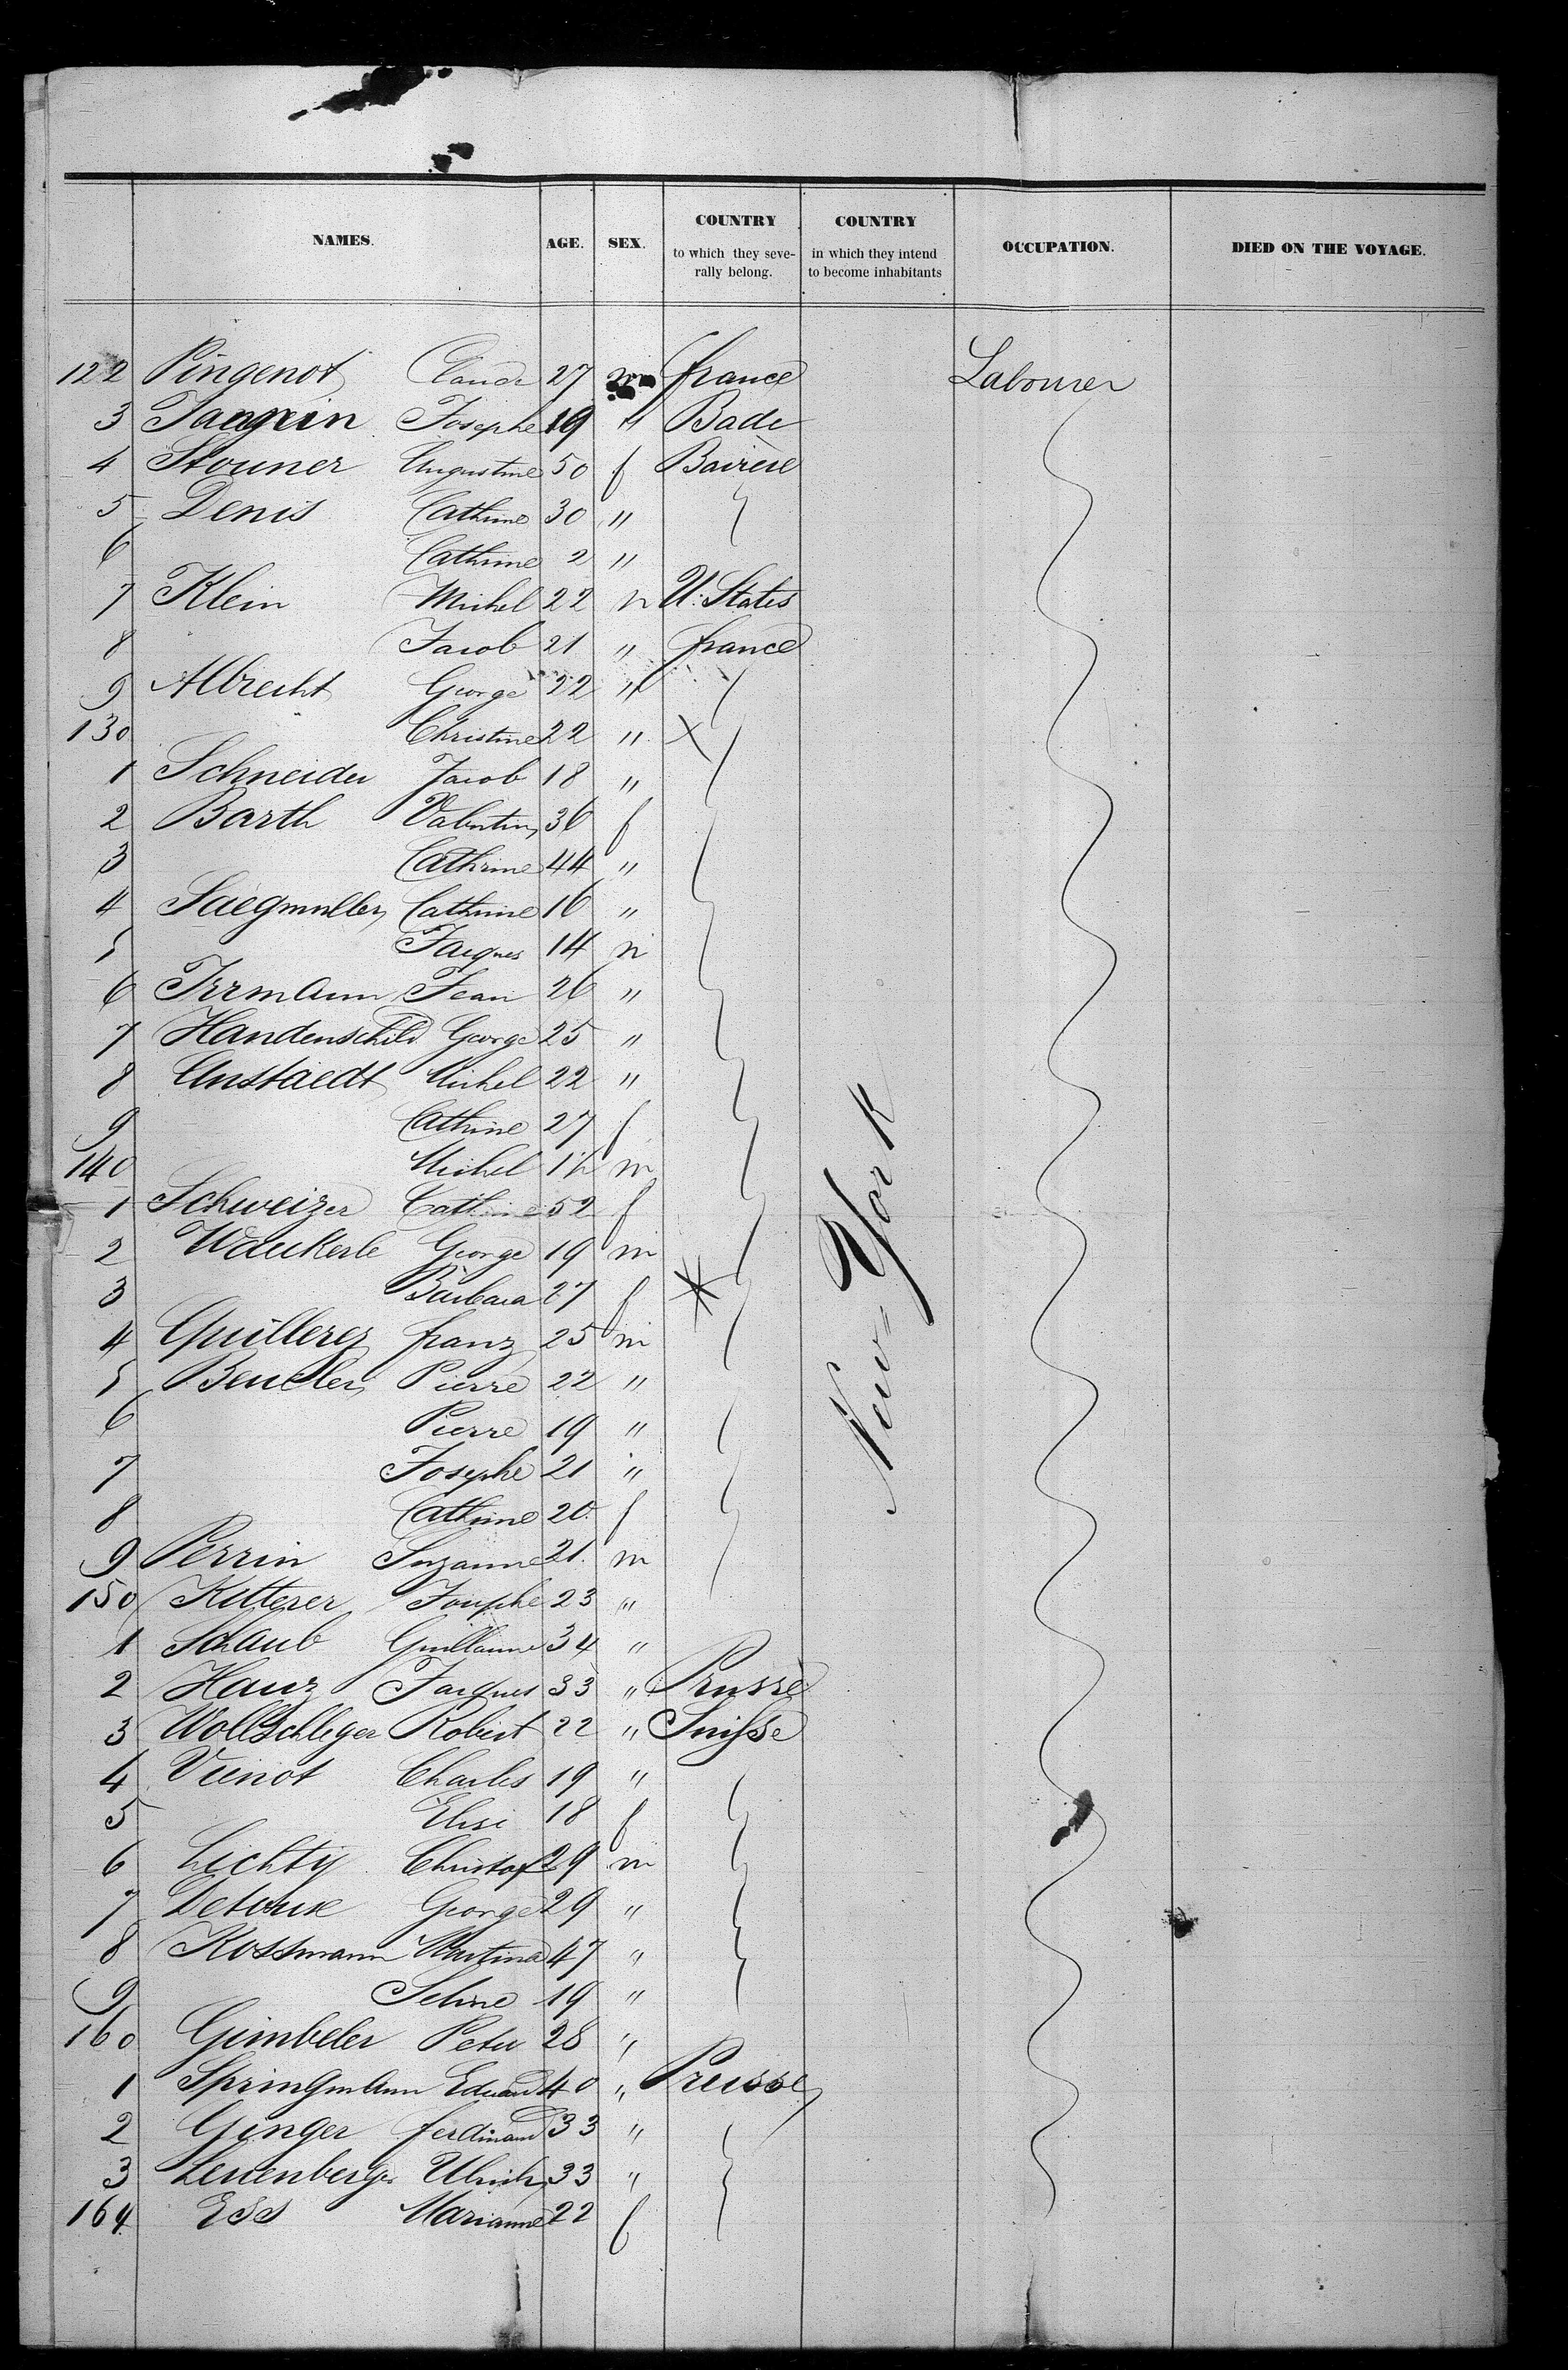 NAMES. AGE. SEX. COUNTRY to which they seve- rally belong. COUNTRY in which they intend to become inhabitants OCCUPATION. DIED ON THE VOYAGE.
122 Pingenot Claude 27 m france Labourer
3 Josephe 19 " Bade
4 Stouner Augustine 50 f Bavière
5 Denis Cathrine 30 "
6 Cathrine 2 "
7 Klein Michel 22 m U: States
8 Jacob 21 " france
9 Albrecht George 22 "
130 Christine 22 " X
1 Schneider Jacob 18 "
2 Barth Valentin 36 f
3 Cathrine 44 "
4 Saegmuller Cathrine 16 "
5 Jaques 14 m
6 Irrmann Jean 26 "
7 Handenschild George 25 "
8 Anstaedt Michel 22 "
9 Cathrine 27 f
140 Michel m
1 Schweizer Cathrine 52 f
2 Wauckerle George 19 m
3 Barbara 27 f
4 Quillerez franz 25 m
5 Beucler Pierre 22 "
6 Pierre 19 "
7 Josephe 21 "
8 Cathrine 20 f
9 Perrin Suzanne 21 m
150 Kitterer Josephe 23 "
1 Schaub Guillaume 34 "
2 Hauz Jacques 33 " Prusse
3 Wollschleger Robert 22 " Suisse
4 Vienot Charles 19 "
5 Elise 18 f
6 Lichty Christof 29 m
7 George 29 "
8 Kossmann Martina 47 "
9 Seline 19 "
160 Gimbeler Peter 28 "
1 Springmann Eduard 40 " Preusse
2 Ginger ferdinand 33 "
3 Leuenberger Ulrich 33 "
164 Ess Marianne 22 f
New-York